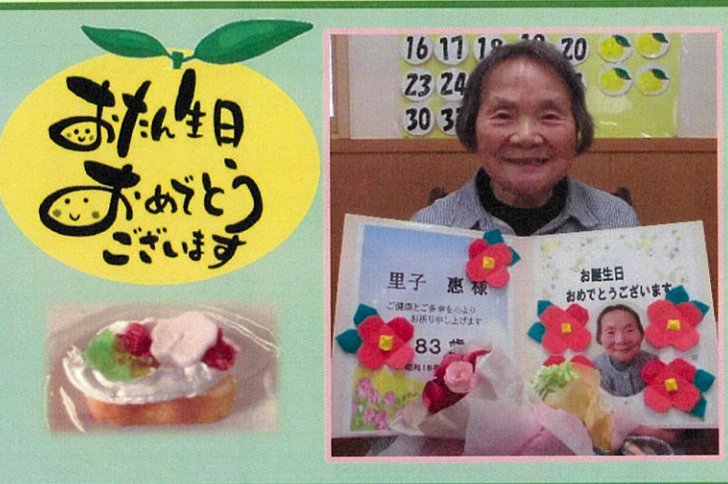 おたん生日
おめでとう
ございます
16 17 18 20
23 24
30
里子 惠 様
ご健康とご多幸を心より
お祈り申し上げます
83歳
昭和18年
お誕生日
おめでとうございます